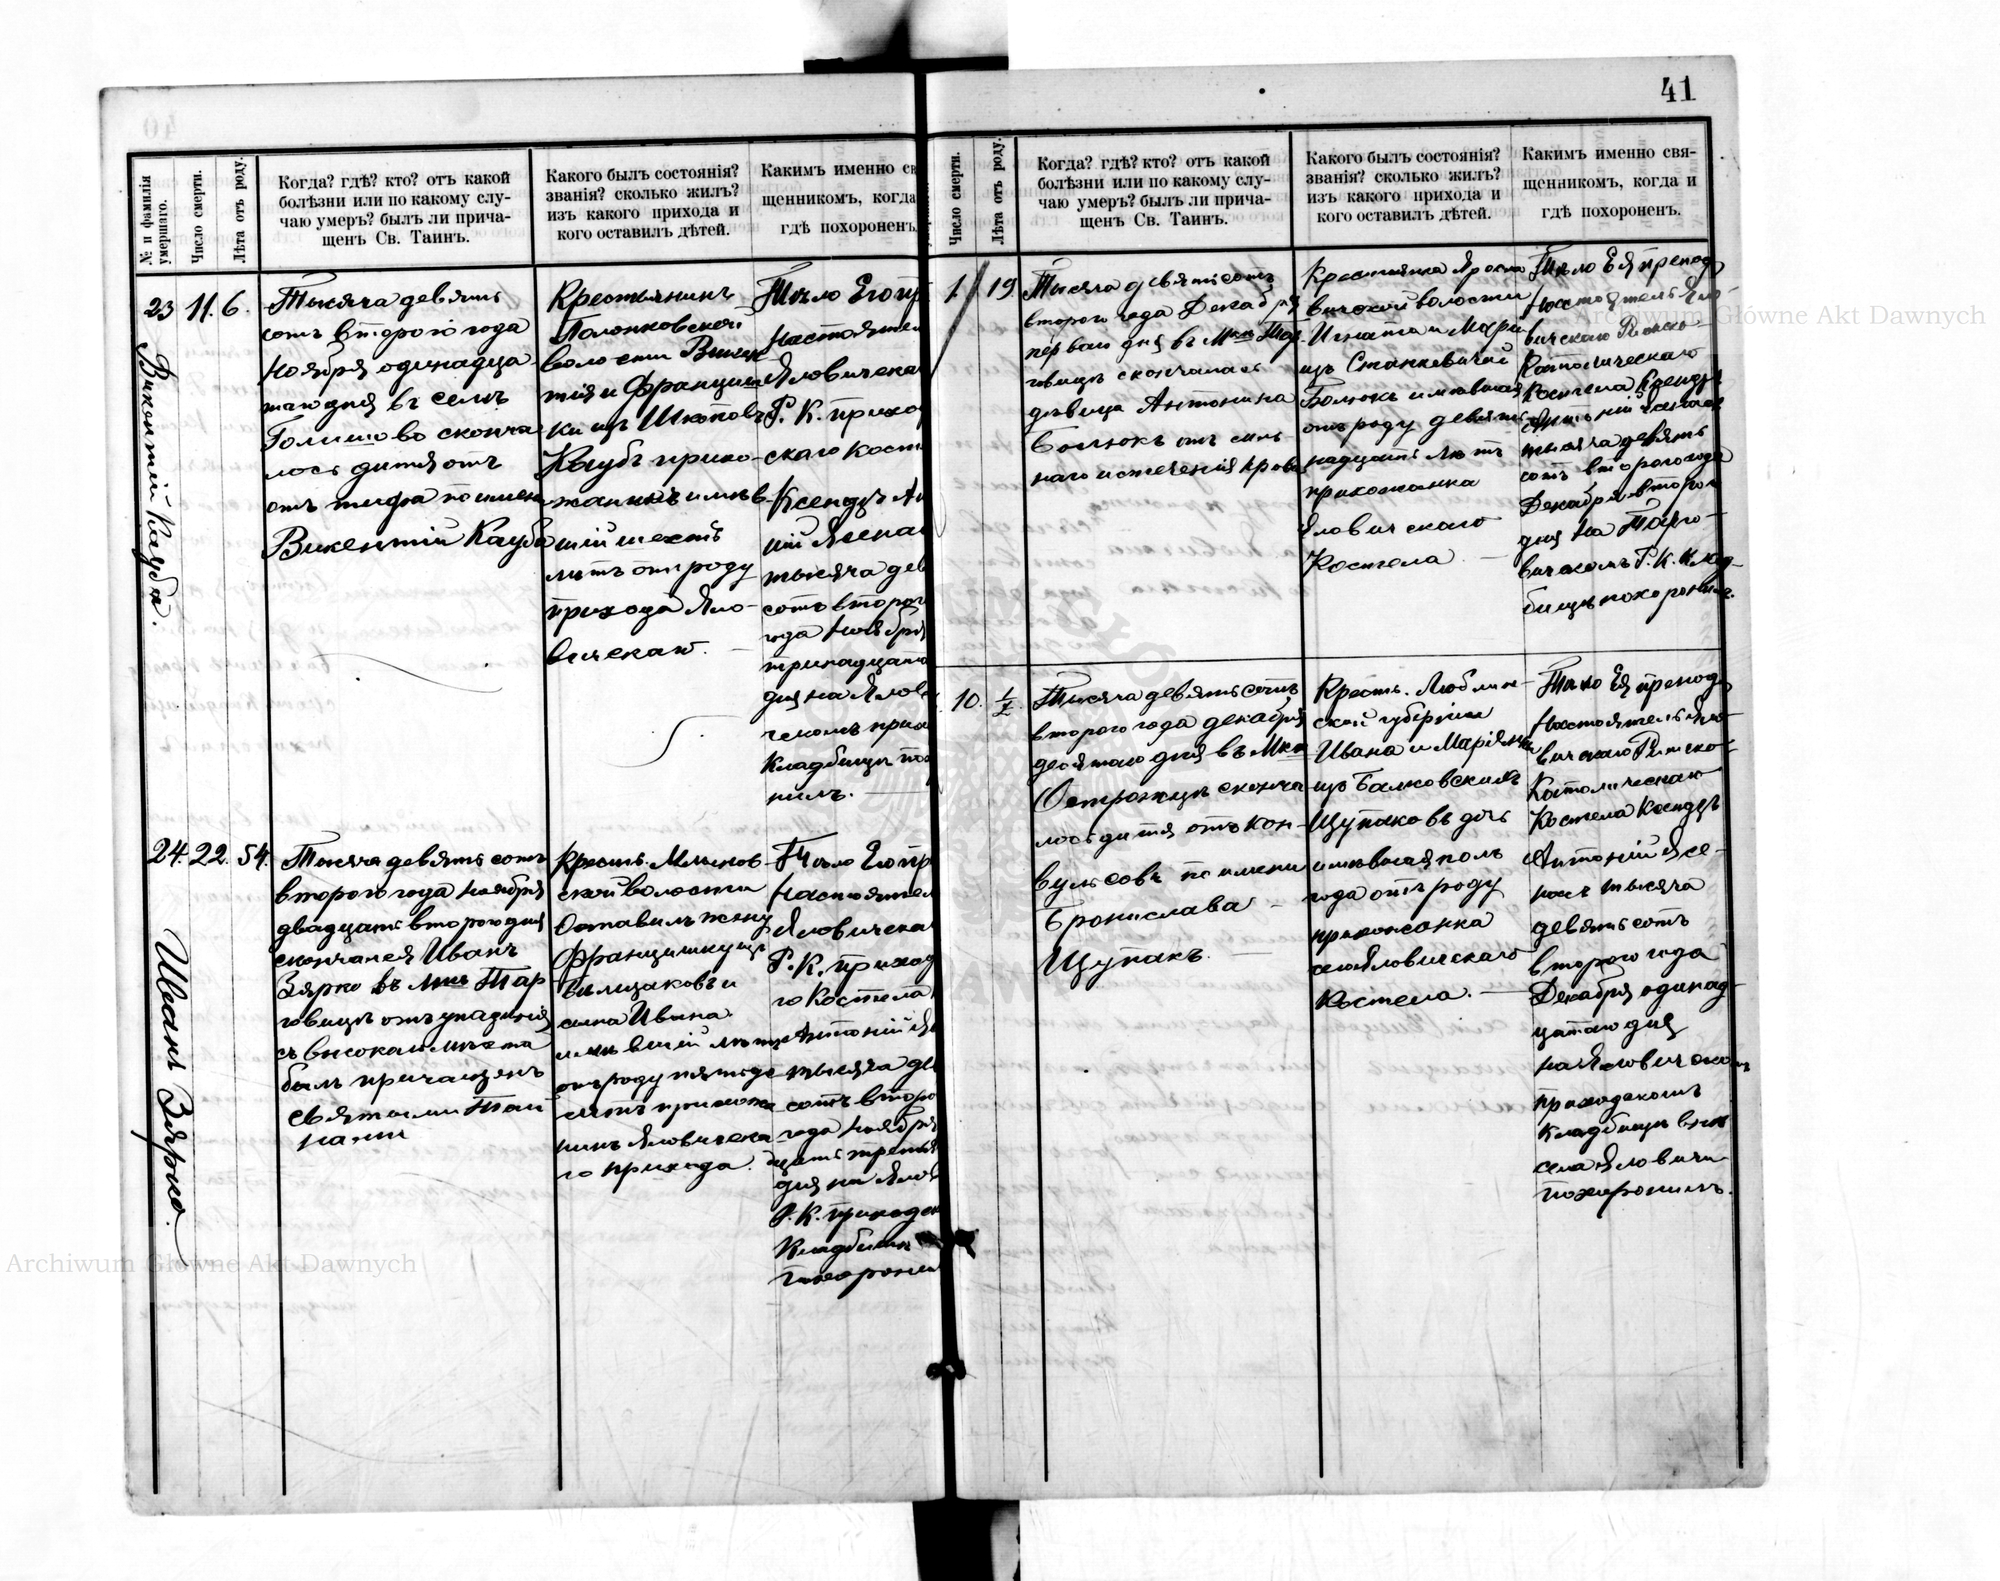 41
№ и фамилія умершаго.
Число смерти.
Лѣта отъ роду.
Когда? гдѣ? кто? отъ какой
болѣзни или по какому слу-
чаю умеръ? былъ ли прича-
щенъ Св. Таинъ.
Какого былъ состоянія?
званія? сколько жилъ?
изъ какого прихода и
кого оставилъ дѣтей.
Какимъ именно св
щенникомъ, когда
гдѣ похороненъ
23
Викентій Кауба.
11.
6.
Тысяча девять
сотъ второго года
Ноября одинадца
таго дня въ селѣ
сконча
лось дитя отъ
отъ тифа по имени
Викентій Кауба
Крестьянинъ
Полонковской
волости Викен
тія и Францишки
Каубъ прихо-
жанинъ имѣв-
шій шесть
лѣтъ отъ роду
прихода Яло-
вичскаго.
Тѣло Его пр
Настоятел
Яловичска
Р. К. прихо
скаго Кост
Ксендзъ Ан
ній Ясена
тысяча дев
сотъ второг
года Ноября
тринадцата
дня на Ялов
ческомъ прих
Кладбищѣ по
нилъ.
24.
Иванъ Зярко.
22.
54.
Тысяча девять сотъ
второго года Ноября
двадцать второго дня
скончался Иванъ
Зярко въ мѣс. Тар
говицѣ отъ упаденія
съ высокаго мѣста
былъ причащенъ
Святыми Тай
нами
Крест. Млынов
ской волости
Оставилъ жену
Францишку изъ
сына Ивана
имѣвшій лѣтъ
отъ роду пятьде
сятъ прихожа
нинъ Яловичска
го прихода.
Тѣло Его пр
Настоятел
Яловичска
Р. К. приход
го Костела
Антоній Я
тысяча де
сотъ второ
года Ноября
дцать третья
дня на Ялов
Р. К. приходск
Кладбищѣ
похорони
Число смерти.
Лѣта отъ роду.
Когда? гдѣ? кто? отъ какой
болѣзни или по какому слу-
чаю умеръ? былъ ли прича-
щенъ Св. Таинъ.
Какого былъ состоянія?
званія? сколько жилъ?
изъ какого прихода и
кого оставилъ дѣтей.
Какимъ именно свя-
щенникомъ, когда и
гдѣ похороненъ.
1.
19
Тысяча девятьсотъ
второго года Декабря
перваго дня въ Мѣс. Тар
говицѣ скончалась
дѣвица Антонина
Болюкъ отъ силь-
наго истеченія крови
Крестьянка Яросла
вичской волости
Игната и Маріи
изъ Станкевичей
Болюкъ имѣвшая
отъ роду девят
надцать лѣтъ
прихожанка
Яловичскаго
Костела.
Тѣло Ея препод
Настоятель Яло-
вичскаго Римско
Католическаго
Костела Ксендзъ
Антоній Ясенас
тысяча девять
сотъ второго года
Декабря второго
дня на Тарго-
вичскомъ Р. К. клад-
бищѣ похоронилъ.
10.
1/2
Тысяча девятьсотъ
второго года декабря
десятаго дня въ Мѣс
Острожцѣ сконча
лось дитя отъ кон-
вульсовъ по имени
Бронислава
Щупакъ.
Крест. Люблин-
ской губерніи
Ивана и Маріянны
изъ Балковскихъ
Щупаковъ дочь
имѣвшая полъ
года отъ роду
прихожанка
Яловичскаго
Костела.
Тѣло Ея препод
Настоятель Яло-
вичскаго Римско-
Католическаго
Костела Ксендзъ
Антоній Ясе-
насъ тысяча
девять сотъ
второго года
Декабря одинад-
цатаго дня
на Яловичскомъ
приходскомъ
кладбищѣ внѣ
села Яловичи
похоронилъ.
Archiwum Główne Akt Dawnych
Archiwum Główne Akt Dawnych